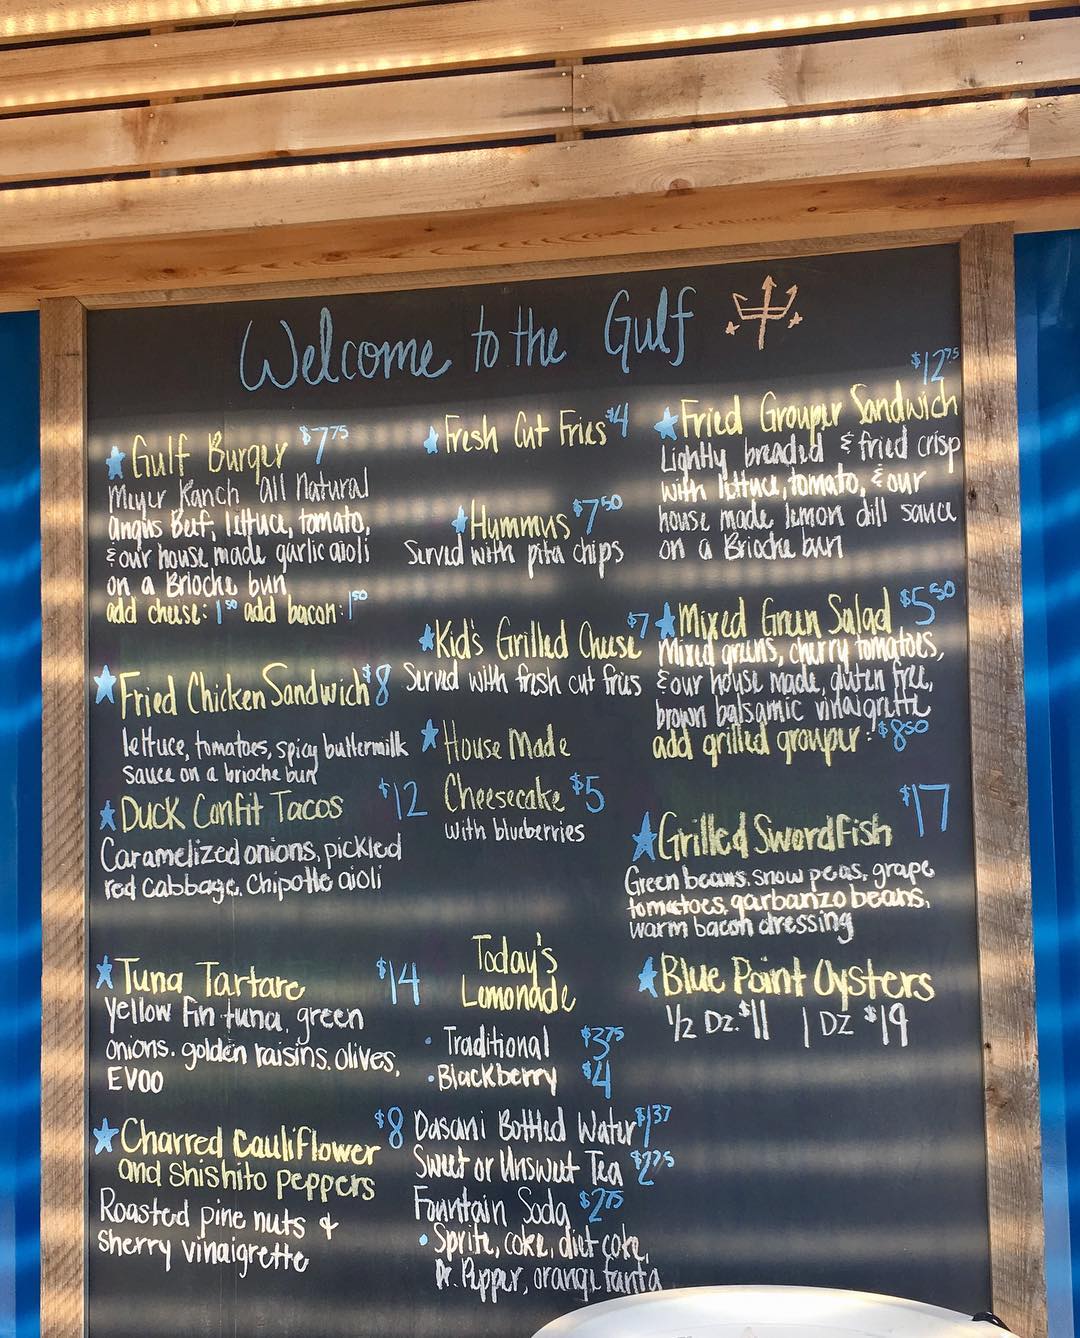 Welcome to the Gulf
★ Gulf Burger $7.75
Meyer Ranch all Natural
angus Beef, lettuce, tomato,
& our house made garlic aioli
on a Brioche bun
add cheese: 1.50 add bacon: 1.50
★ Fried Chicken Sandwich $8
lettuce, tomatoes, spicy buttermilk
sauce on a brioche bun
★ Duck Confit Tacos $12
Caramelized onions, pickled
red cabbage, chipotle aioli
★ Tuna Tartare $14
yellow Fin tuna, green
onions, golden raisins, olives,
EVOO
★ Charred Cauliflower $8
and Shishito peppers
Roasted pine nuts &
sherry vinaigrette
★ Fresh Cut Fries $4
★ Hummus $7.50
Served with pita chips
★ Kid's Grilled Cheese $7
Served with fresh cut fries
★ House Made
Cheesecake $5
with blueberries
Today's
Lemonade
• Traditional $3.75
• Blackberry $4
Dasani Bottled Water $1.37
Sweet or Unsweet Tea $2.25
Fountain Soda $2.75
• Sprite, coke, diet coke,
Dr. Pepper, orange fanta
$12.75
★ Fried Grouper Sandwich
Lightly breaded & fried crisp
with lettuce, tomato, & our
house made lemon dill sauce
on a Brioche bun
★ Mixed Green Salad $5.50
Mixed greens, cherry tomatoes,
& our house made, gluten free,
brown balsamic vinaigrette
add grilled grouper: $8.50
★ Grilled Swordfish $17
Green beans, snow peas, grape
tomatoes, garbanzo beans,
warm bacon dressing
★ Blue Point Oysters
1/2 Dz. $11 1 DZ $19